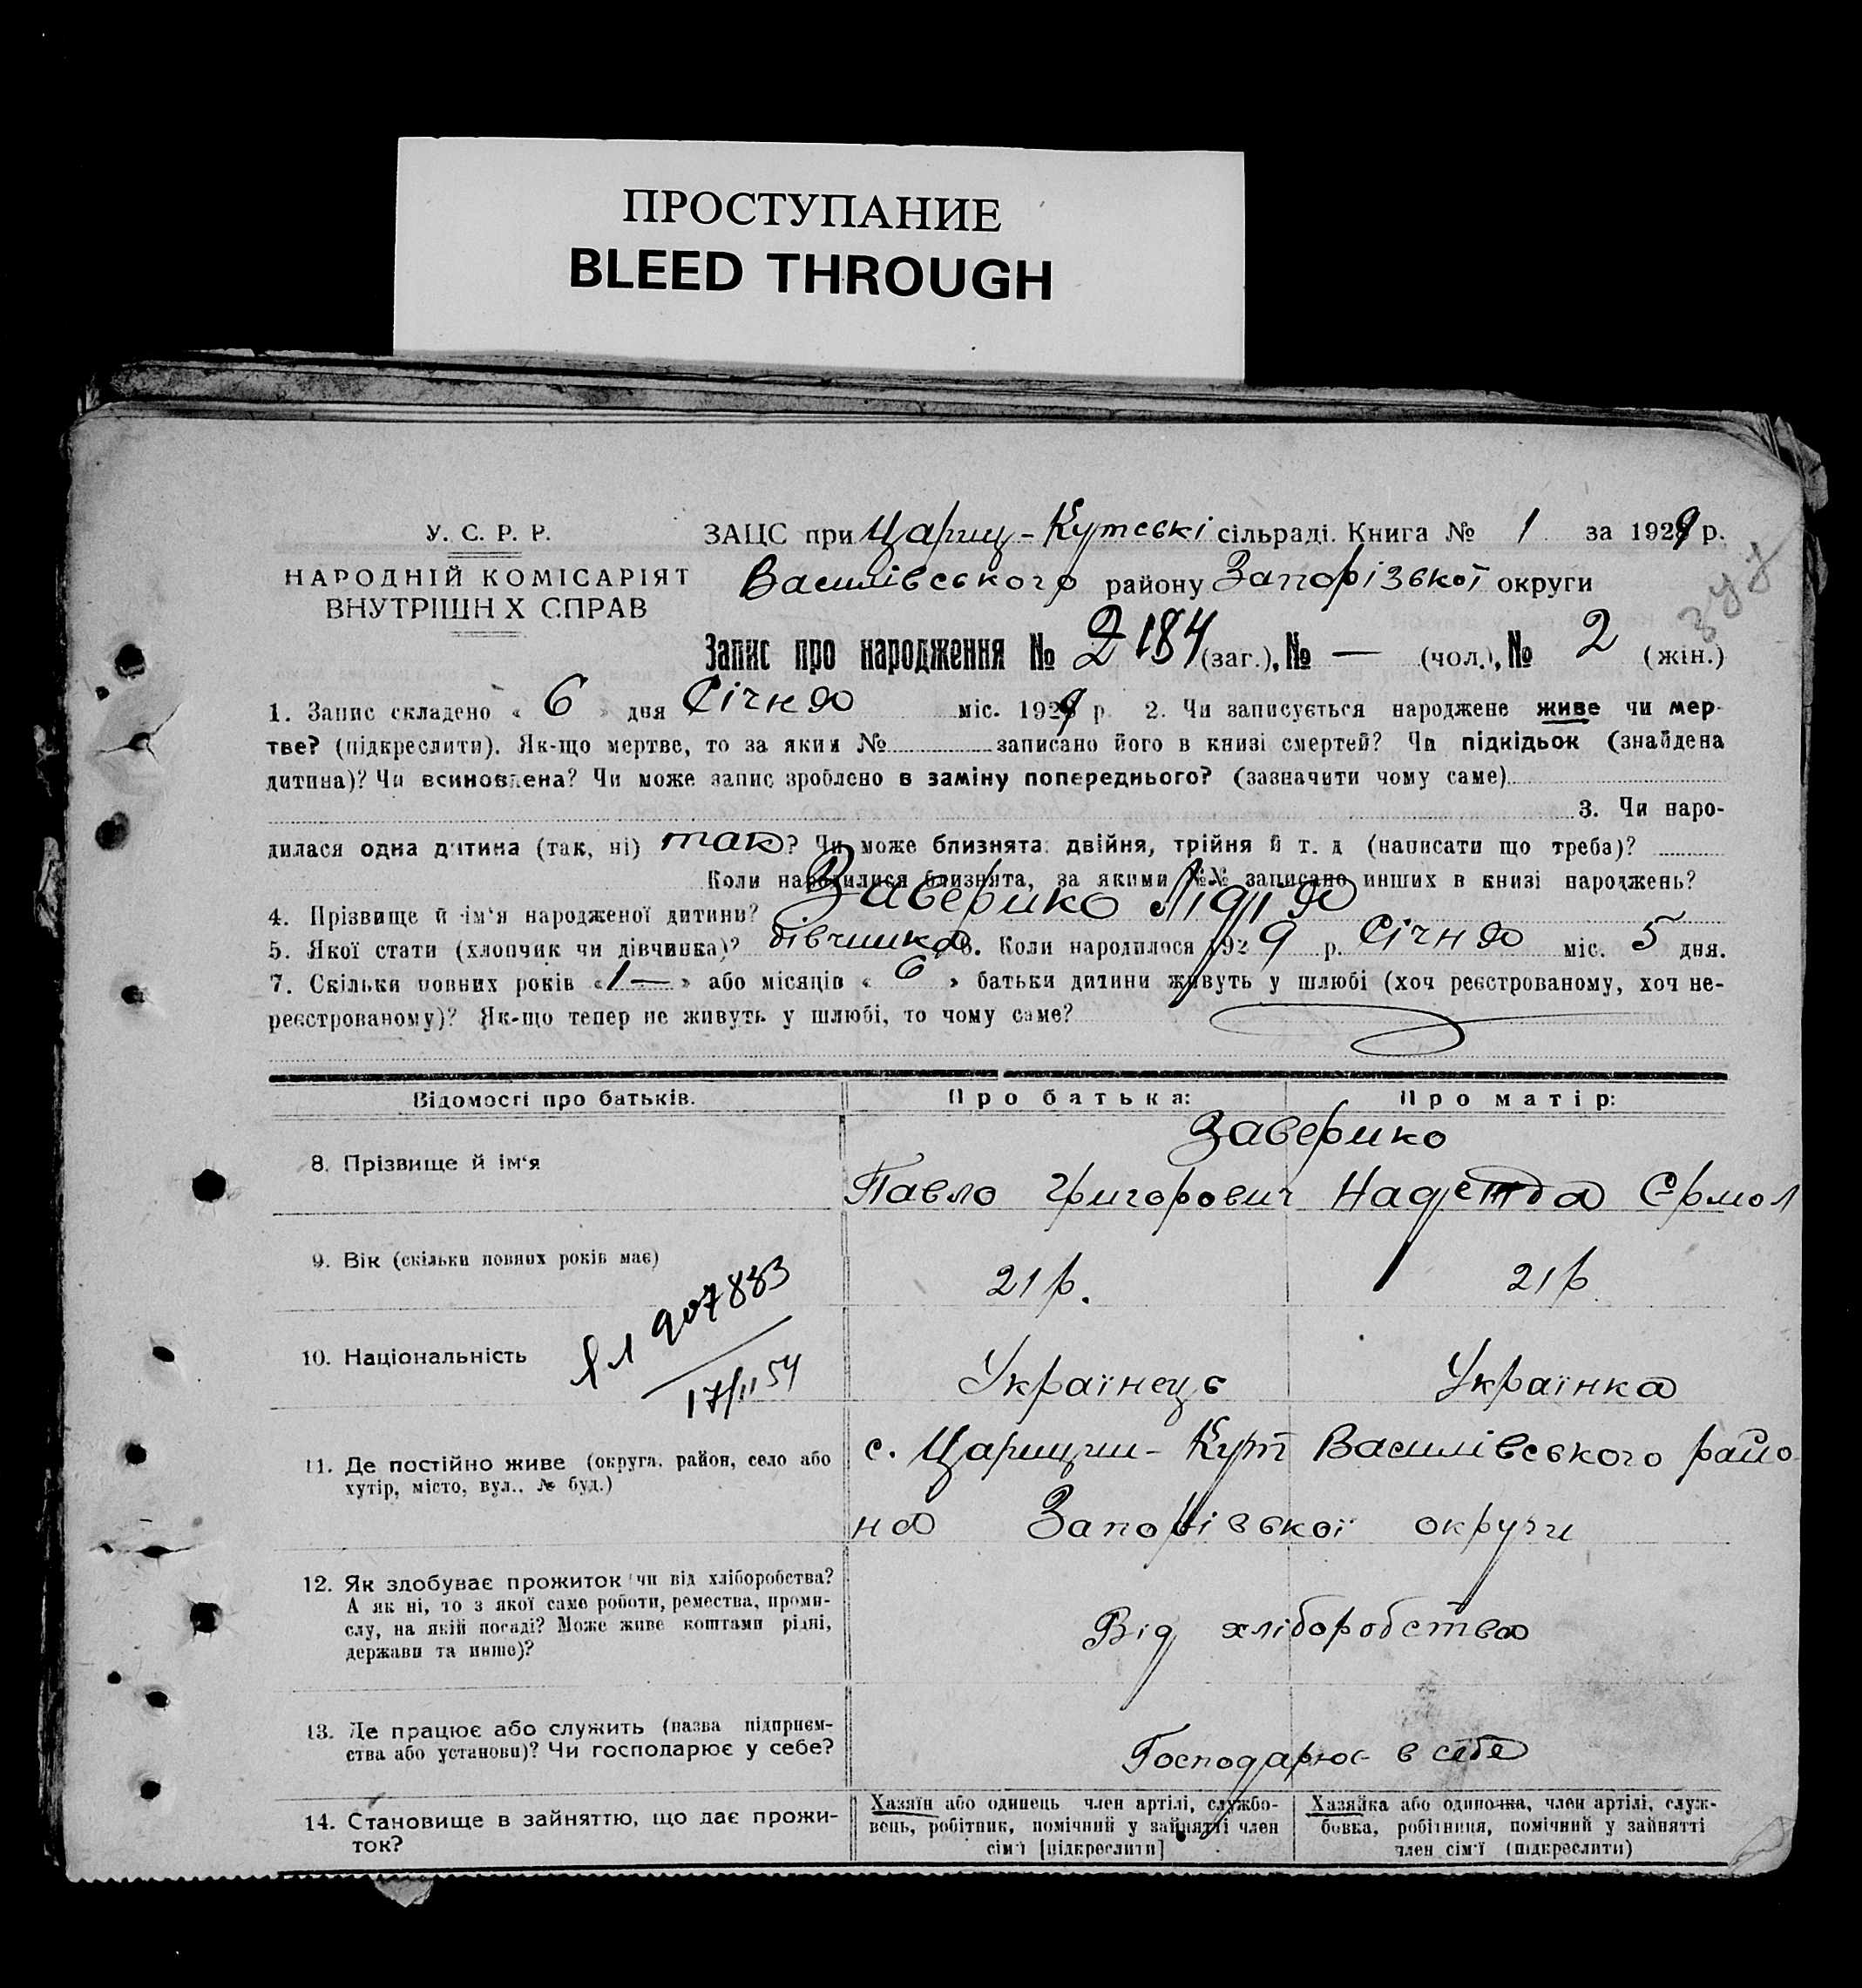 ПРОСТУПАНИЕ
BLEED THROUGH
У. С. Р. Р.
НАРОДНІЙ КОМІСАРІЯТ
ВНУТРІШН Х СПРАВ
ЗАЦС при Цариц-Кутські сільраді. Книга № 1 за 1929 р.
Василівського району Запорізької округи
Запис про народження № 2 184 (заг.), № — (чол.), № 2 (жін.)
1. Запис складено « 6 » дня Січня міс. 1929 р. 2. Чи записується народжене живе чи мер-
тве? (підкреслити). Як-що мертве, то за яким № записано його в книзі смертей? Чи підкідьок (знайдена
дитина)? Чи всиновлена? Чи може запис зроблено в заміну попереднього? (зазначити чому саме)
3. Чи наро-
дилася одна дитина (так, ні) так? Чи може близнята: двійня, трійня й т. д (написати що треба)?
Коли народилися близнята, за якими №№ записано инших в книзі народжень?
4. Прізвище й ім'я народженої дитини? Заверико Лідія
5. Якої стати (хлопчик чи дівчинка)? дівчинка 6. Коли народилося 1929 р. Січня міс. 5 дня.
7. Скільки повних років «1—» або місяців « 6 » батьки дитини живуть у шлюбі (хоч реєстрованому, хоч не-
реєстрованому)? Як-що тепер не живуть у шлюбі, то чому саме?
Відомості про батьків.
Про батька:
Про матір:
8. Прізвище й ім'я
Заверико
Павло Григорович Надежда Єрмол
9. Вік (скільки повних років має)
21 р.
21 р
907883
17/II 54
10. Національність
Українець
Українка
11. Де постійно живе (округа, район, село або
хутір, місто, вул., № буд.)
с. Царицин-Кут Василівського райо
на Запорізької округи
12. Як здобуває прожиток чи від хліборобства?
А як ні, то з якої саме роботи, ремества, проми-
слу, на якій посаді? Може живе коштами рідні,
держави та инше)?
Від хліборобства
13. Де працює або служить (назва підприєм-
ства або установи)? Чи господарює у себе?
Господарює в себе
14. Становище в зайняттю, що дає прожи-
ток?
Хазяїн або одинець член артілі, службо-
вець, робітник, помічний у зайнятті член
сім'ї [підкреслити]
Хазяйка або одиночка, член артілі, служ-
бовка, робітниця, помічний у зайнятті
член сім'ї (підкреслити)